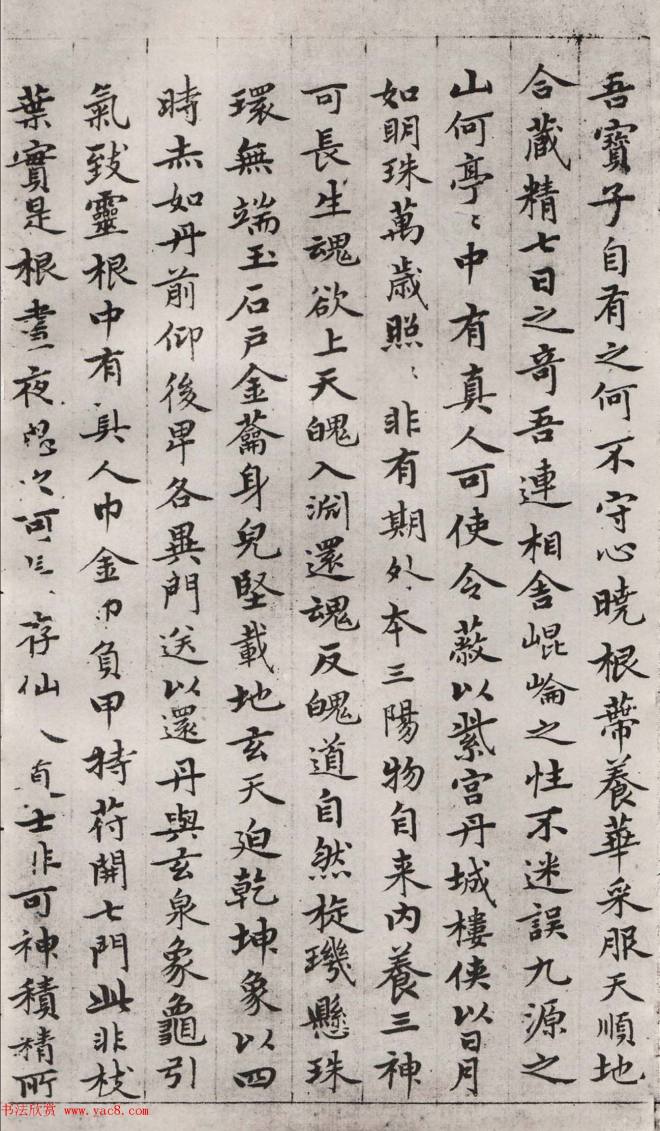 吾寶子自有之何不守心曉根蔕養華采服天順地
合藏精七日之奇吾連相舍崐崘之性不迷誤九源之
山何亭〻中有真人可使令蔽以紫宫丹城樓俠以日月
如明珠萬歲照〻非有期外本三陽物自来内養三神
可長生魂欲上天魄入淵還魂反魄道自然旋璣懸珠
環無端玉石戸金籥身皃堅載地玄天迫乾坤象以四
時赤如丹前仰後卑各異門送以還丹與玄泉象龜引
氣致靈根中有真人巾金巾負甲持苻開七門此非枝
葉實是根晝夜思之可存仙士非可神積精所
书法欣赏 www.yac8.com